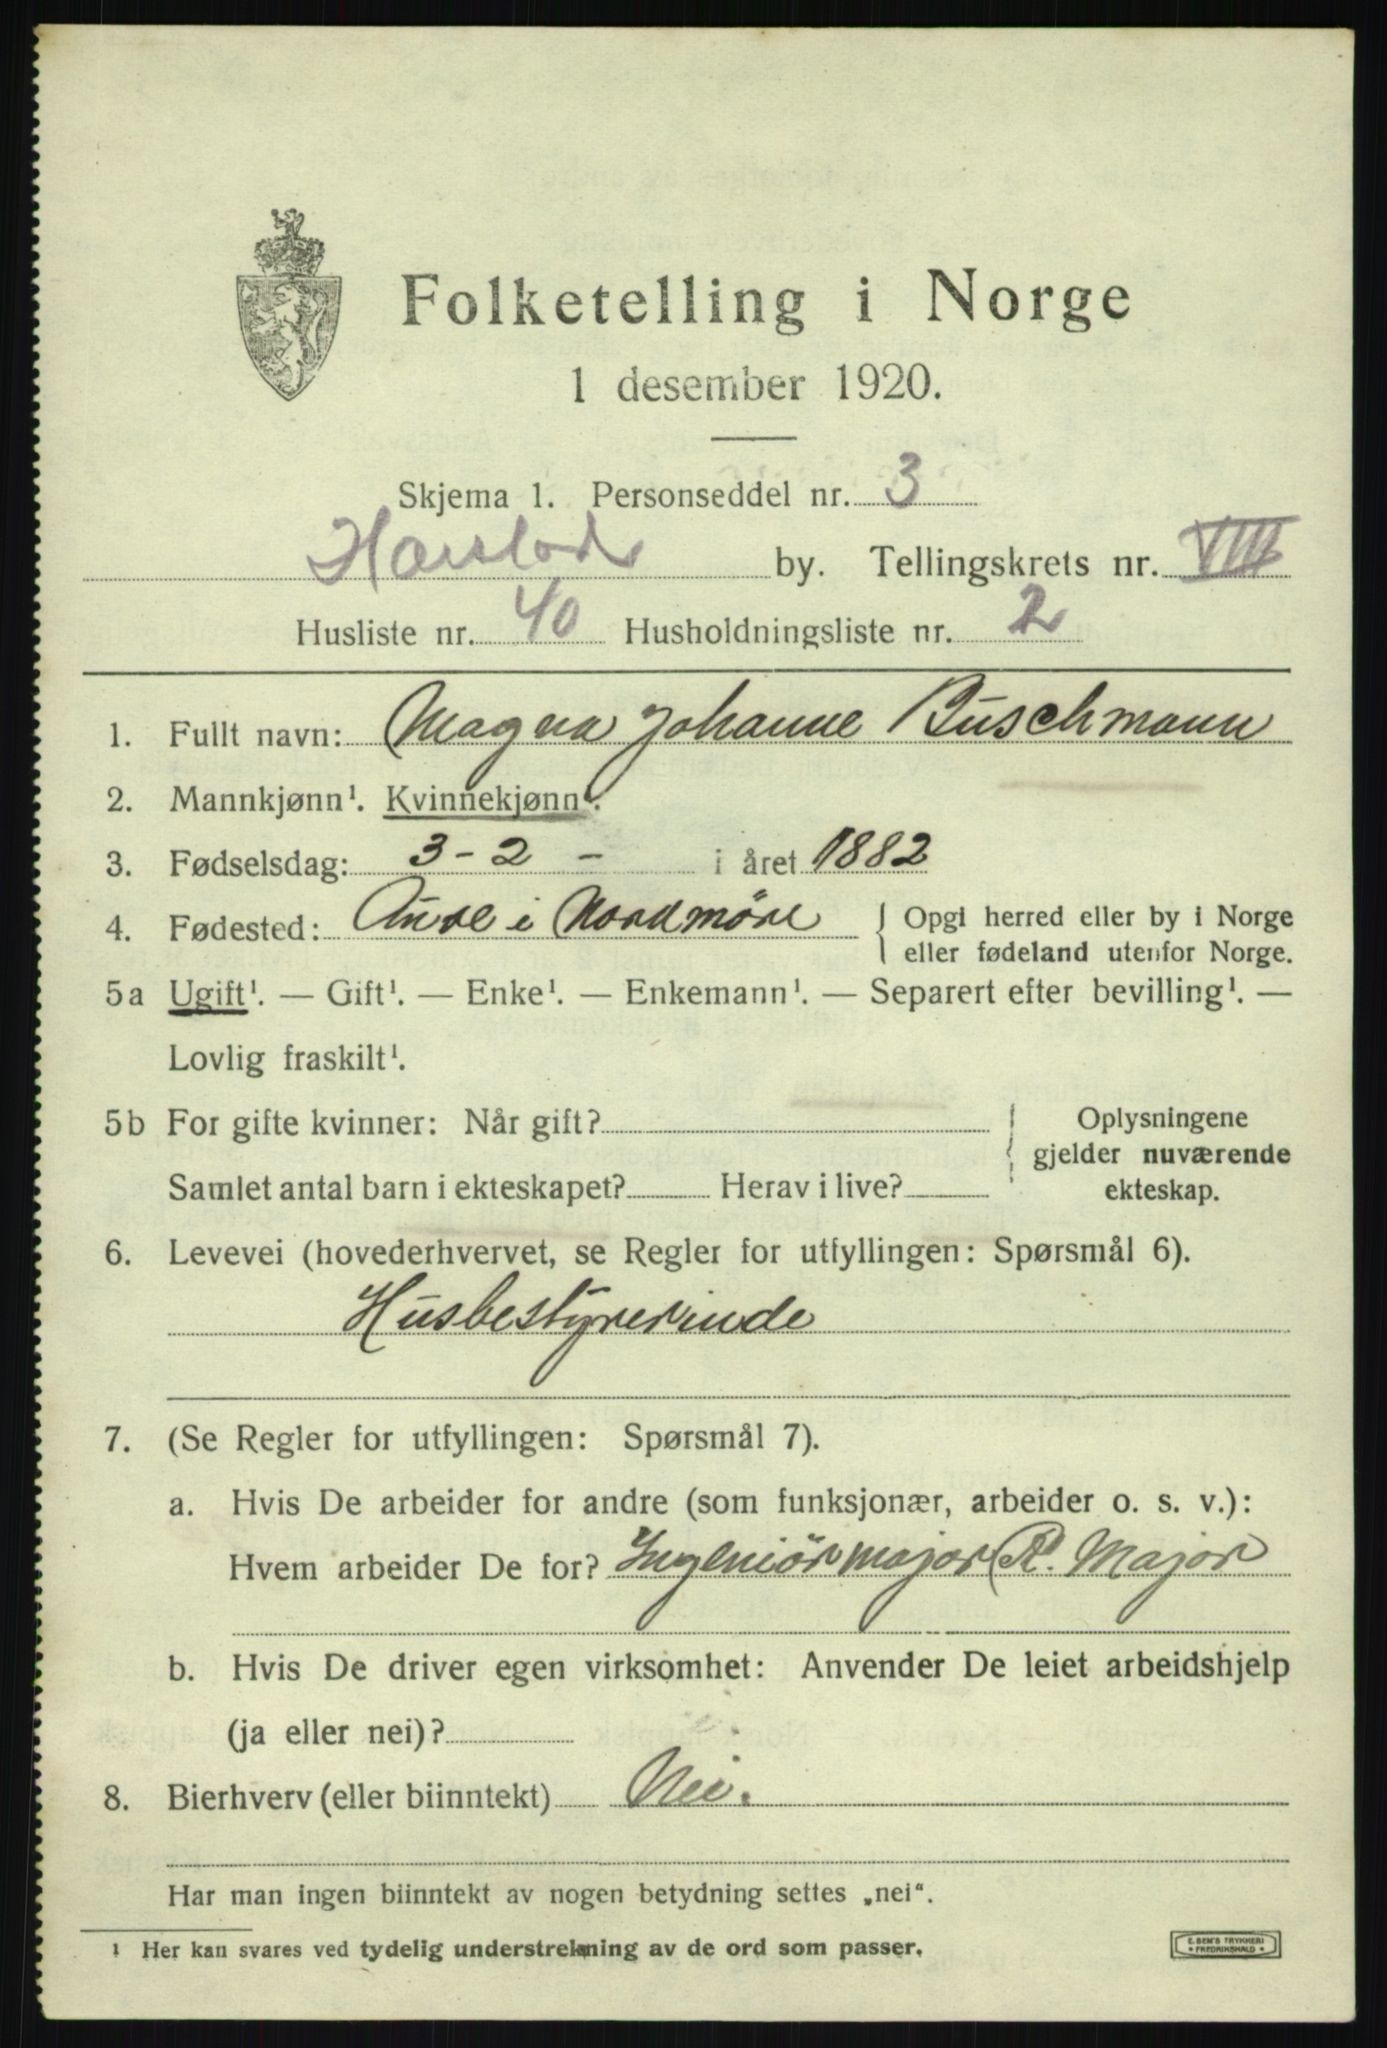 Folketelling i Norge
1 desember 1920.
Skjema 1. Personseddel nr. 3
Harstad by. Tellingskrets nr. VIII
Husliste nr. 40 Husholdningsliste nr. 2
1. Fullt navn: Magna Johanne Buschmann
2. Mannkjønn¹. Kvinnekjønn¹.
3. Fødselsdag: 3-2 - i året 1882
4. Fødested: Aure i Nordmöre { Opgi herred eller by i Norge
eller fødeland utenfor Norge.
5a Ugift¹. — Gift¹. — Enke¹. — Enkemann¹. — Separert efter bevilling¹. —
Lovlig fraskilt¹.
5b For gifte kvinner: Når gift? { Oplysningene
gjelder nuværende
Samlet antal barn i ekteskapet? Herav i live? ekteskap.
6. Levevei (hovederhvervet, se Regler for utfyllingen: Spørsmål 6).
Husbestyrerinde
7. (Se Regler for utfyllingen: Spørsmål 7).
a. Hvis De arbeider for andre (som funksjonær, arbeider o. s. v.):
Hvem arbeider De for? Ingeniör major R. Major
b. Hvis De driver egen virksomhet: Anvender De leiet arbeidshjelp
(ja eller nei)?
8. Bierhverv (eller biinntekt) Nei.
Har man ingen biinntekt av nogen betydning settes „nei“.
¹ Her kan svares ved tydelig understrekning av de ord som passer.
E. SEM'S TRYKKERI
* FREDRIKSHALD *